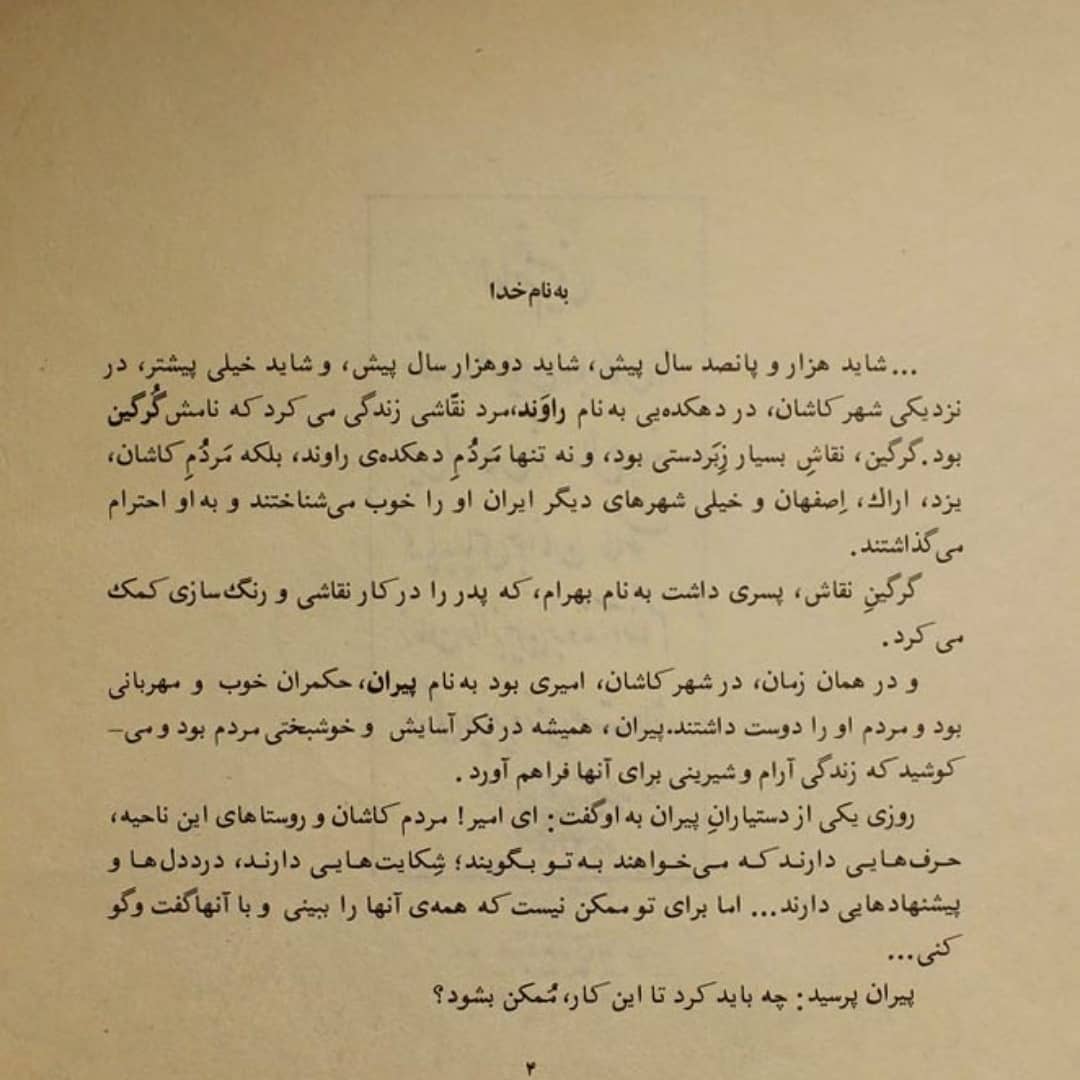 به نام خدا
... شاید هزار و پانصد سال پیش، شاید دوهزار سال پیش، و شاید خیلی پیشتر، در
نزدیکی شهر کاشان، در دهکده‌یی به نام راوَند،مرد نقّاشی زندگی می کرد که نامش گُرگین
بود. گرگین، نقاشِ بسیار زِبَردستی بود، و نه تنها مَردُمِ دهکده‌ی راوند، بلکه مَردُمِ کاشان،
یزد، اراك، اِصفهان و خیلی شهرهای دیگر ایران او را خوب می‌شناختند و به او احترام
می‌گذاشتند.
گرگینِ نقاش، پسری داشت به نام بهرام، که پدر را در کار نقاشی و رنگ‌سازی کمك
می کرد.
و در همان زمان، در شهر کاشان، امیری بود به نام پیران، حکمران خوب و مهربانی
بود و مردم او را دوست داشتند. پیران، همیشه در فکر آسایش و خوشبختی مردم بود و می–
کوشید که زندگی آرام و شیرینی برای آنها فراهم آورد.
روزی یکی از دستیارانِ پیران به او گفت: ای امیر! مردم کاشان و روستاهای این ناحیه،
حرف‌هایی دارند که می‌خواهند به تو بگویند؛ شِکایت‌هایی دارند، درددل‌ها و
پیشنهادهایی دارند... اما برای تو ممکن نیست که همه‌ی آنها را ببینی و با آنها گفت وگو
کنی...
پیران پرسید: چه باید کرد تا این کار، مُمکن بشود؟
۴